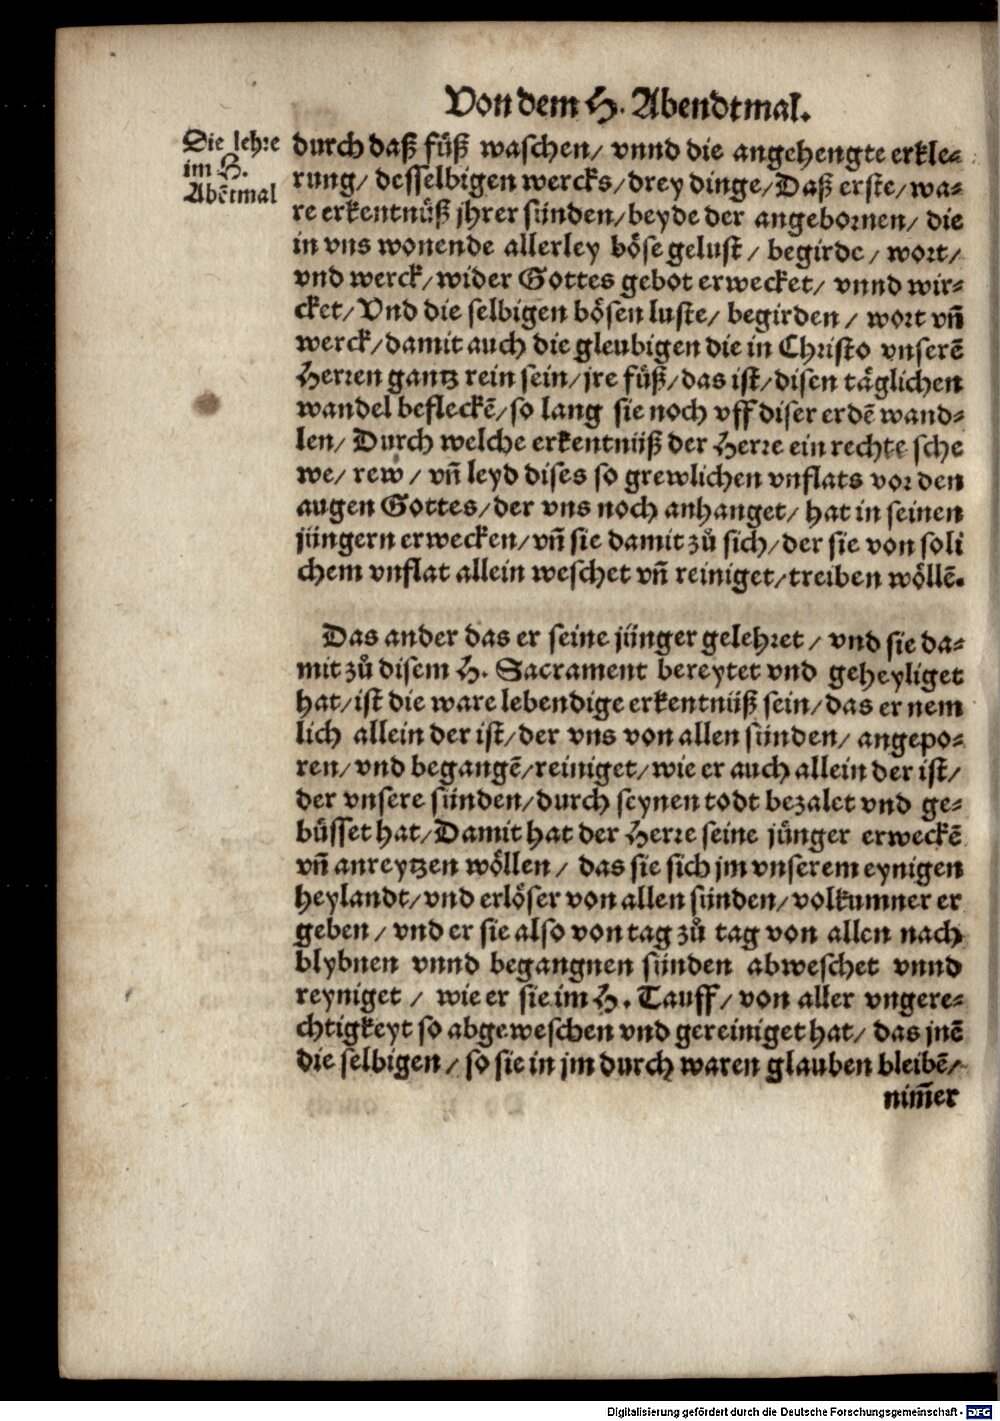 Von dem H. Abendtmal.
Die lehre
im H.
Abẽtmal
durch daß fůß waschen/ vnnd die angehengte erkle⸗
rung/ desselbigen wercks/ drey dinge/ Daß erste/ wa⸗
re erkentnüß jhrer sünden/ beyde der angebornen/ die
in vns wonende allerley böse gelust/ begirde/ wort/
vnd werck/ wider Gottes gebot erwecket/ vnnd wir⸗
cket/ Vnd die selbigen bösen luste/ begirden/ wort vñ
werck/ damit auch die gleubigen die in Christo vnserẽ
Herren gantz rein sein/ jre fůß/ das ist/ disen täglichen
wandel befleckẽ/ so lang sie noch vff diser erdẽ wand⸗
len/ Durch welche erkentnüß der Herre ein rechte sche
we/ rew/ vñ leyd dises so grewlichen vnflats vor den
augen Gottes/ der vns noch anhanget/ hat in seinen
jüngern erwecken/ vñ sie damit zů sich/ der sie von soli
chem vnflat allein weschet vñ reiniget/ treiben wöllẽ.
Das ander das er seine jünger gelehret/ vnd sie da⸗
mit zů disem H. Sacrament bereytet vnd geheyliget
hat/ ist die ware lebendige erkentnüß sein/ das er nem
lich allein der ist/ der vns von allen sünden/ angepo⸗
ren/ vnd begangẽ/ reiniget/ wie er auch allein der ist/
der vnsere sünden/ durch seynen todt bezalet vnd ge⸗
büsset hat/ Damit hat der Herre seine jünger erweckẽ
vñ anreytzen wöllen/ das sie sich jm vnserem eynigen
heylandt/ vnd erlöser von allen sünden/ volkumner er
geben/ vnd er sie also von tag zů tag von allen nach
blybnen vnnd begangnen sünden abweschet vnnd
reyniget/ wie er sie im H. Tauff/ von aller vngere⸗
chtigkeyt so abgeweschen vnd gereiniget hat/ das jnẽ
die selbigen/ so sie in jm durch waren glauben bleibẽ/
nim̃er
Digitalisierung gefördert durch die Deutsche Forschungsgemeinschaft - DFG